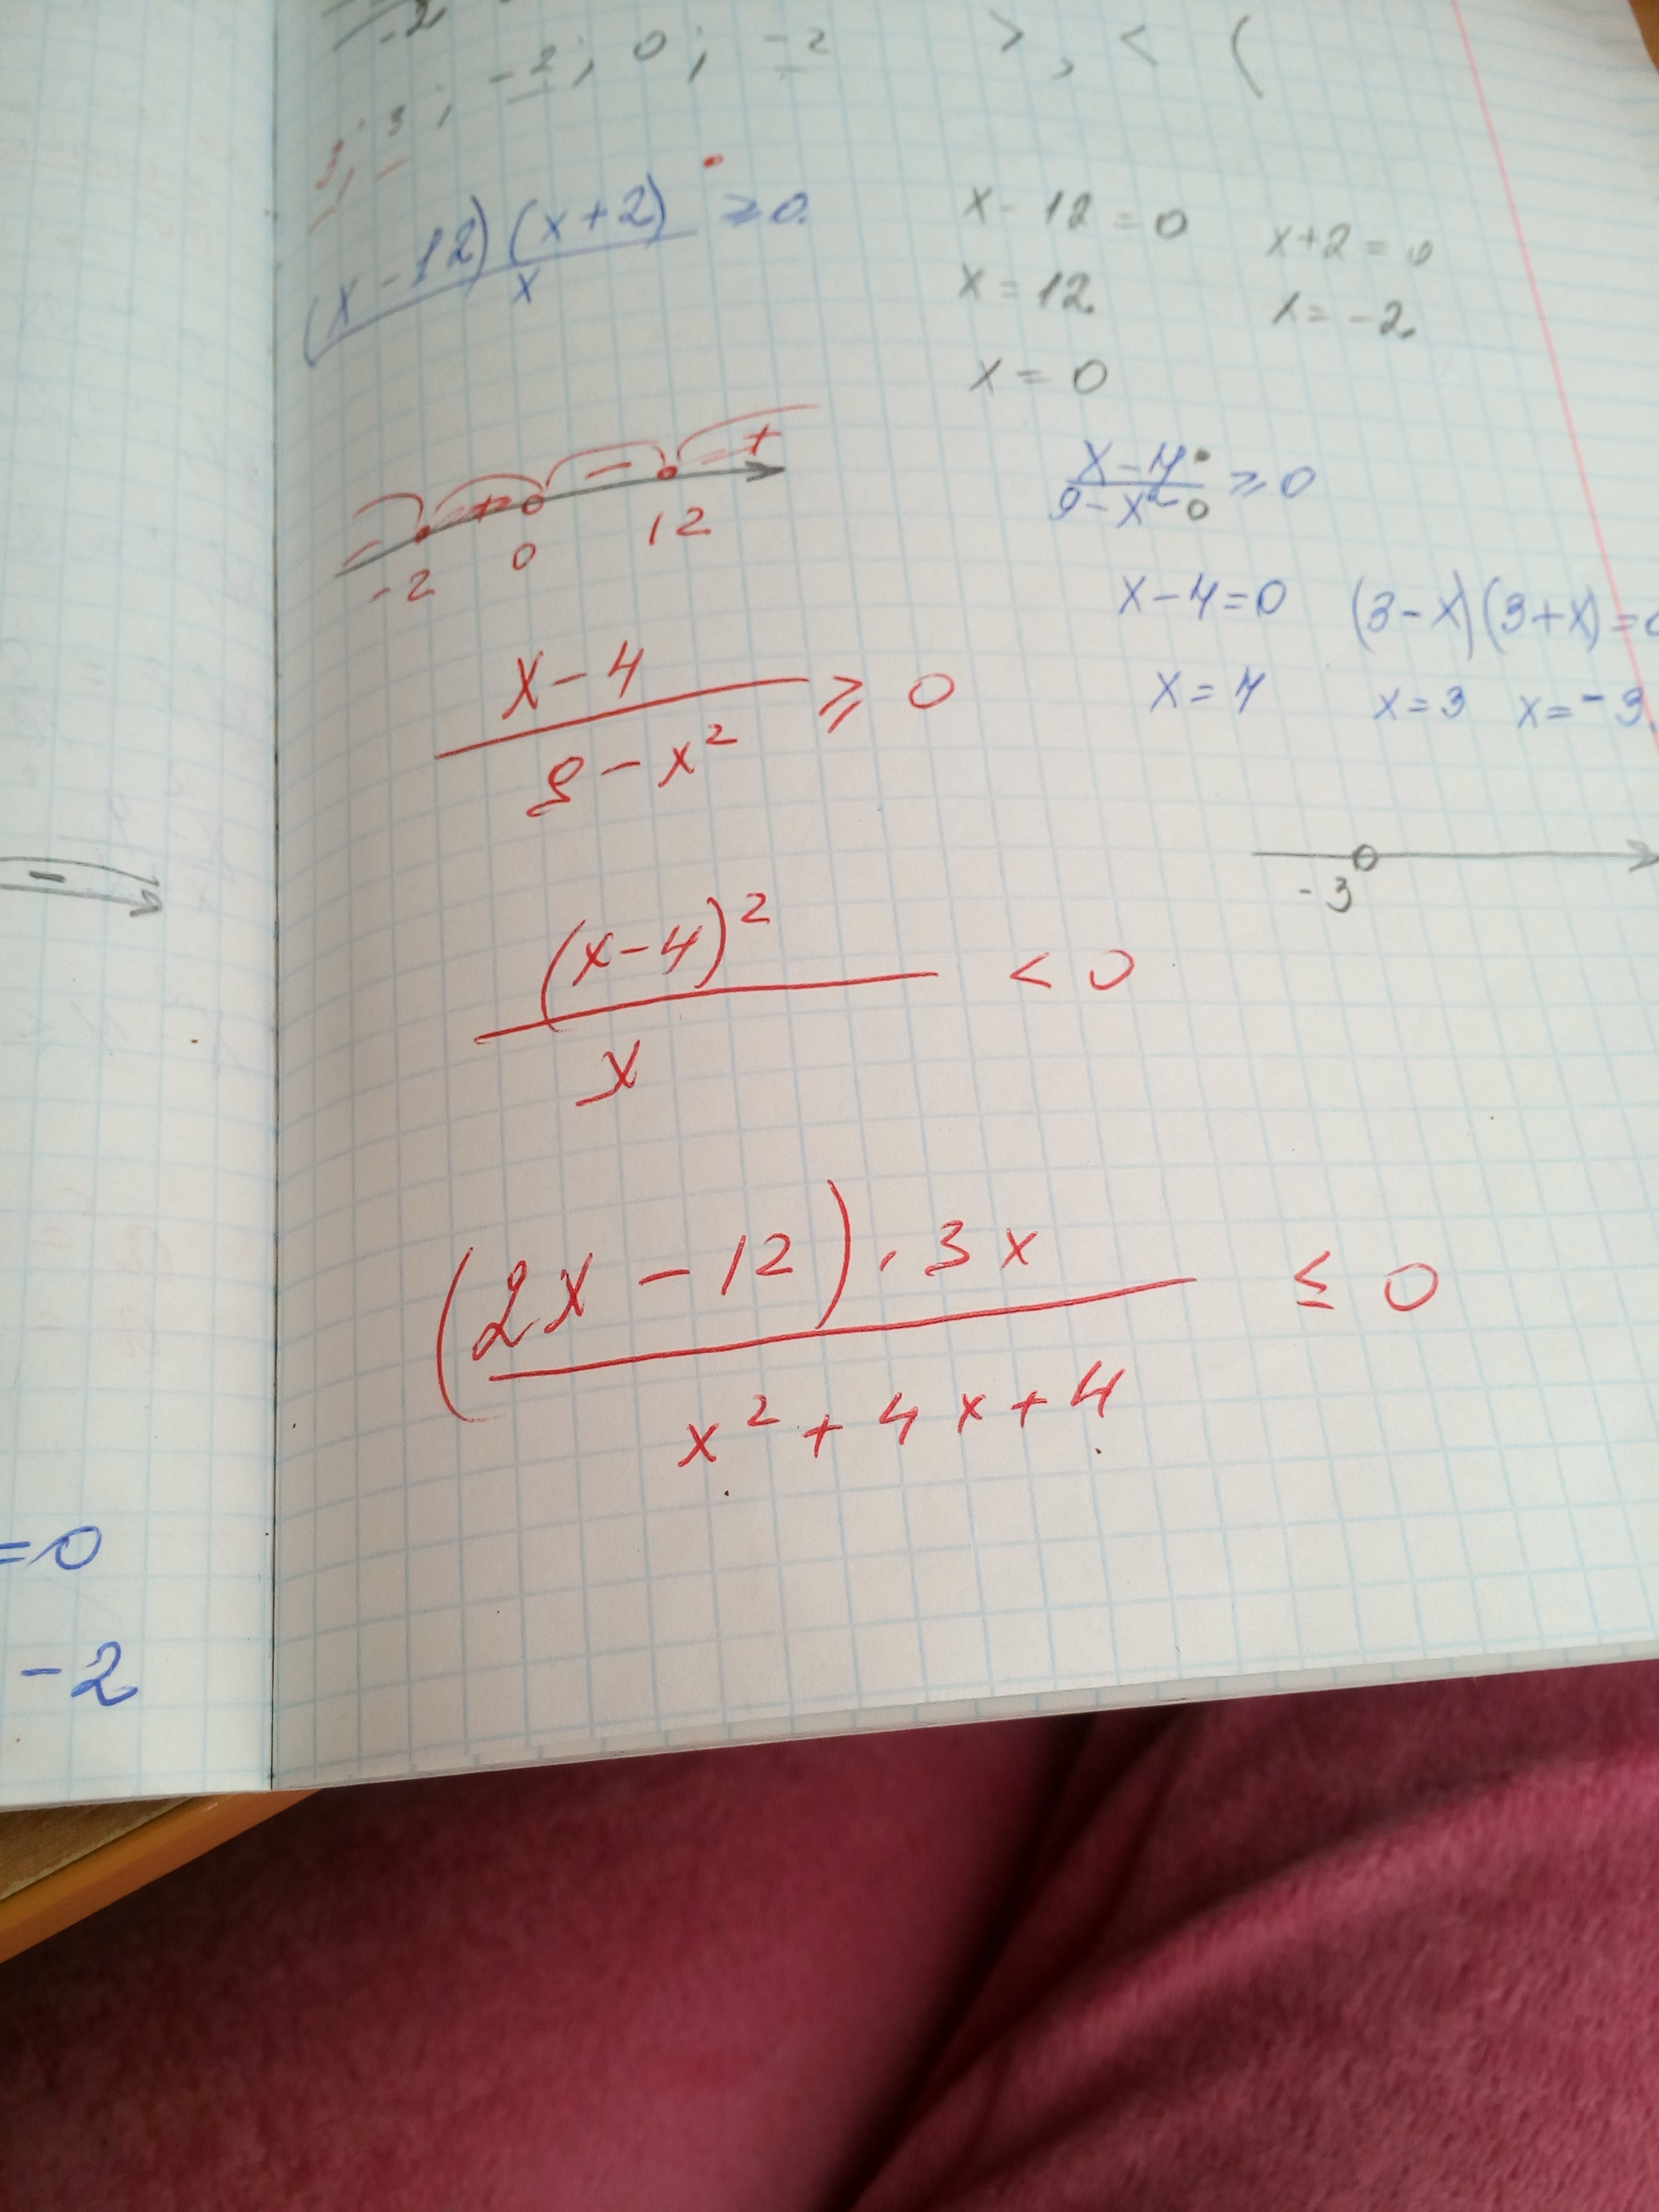 -2
3; -2; 0; -2 >, < (
(x-12)(x+2)/x ≥ 0
x - 12 = 0 x+2 = 0
x = 12 x = -2
x = 0
- + - + 
-2 0 12
x-4/9-x² ≥ 0
x-4=0 (3-x)(3+x)=0
x=4 x=3 x=-3
x-4/9-x² ≥ 0
-3
-
(x-4)²/x < 0
(2x-12)·3x/x²+4x+4 ≤ 0
=0
-2